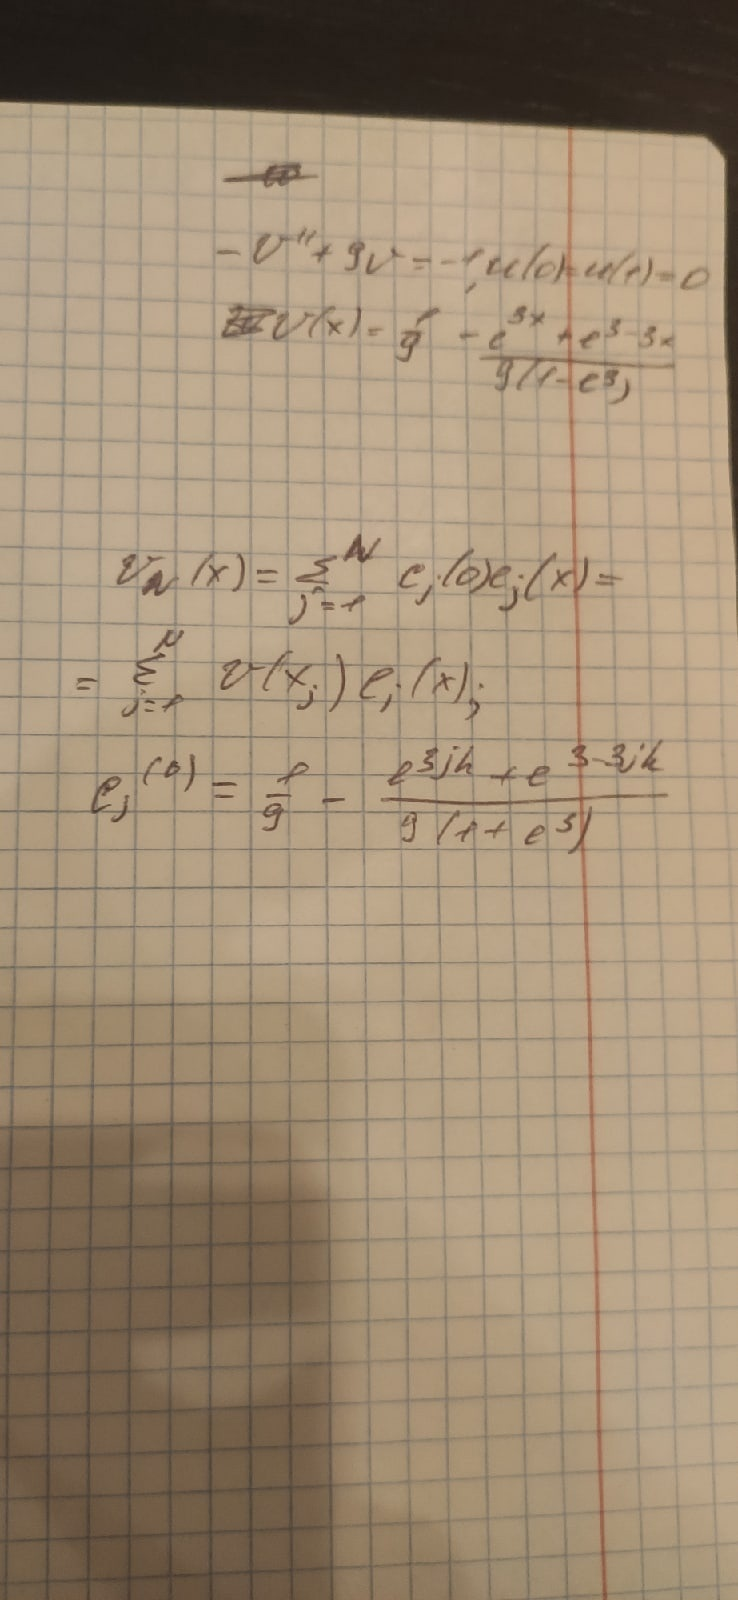 -v'' + 9v = -1, u(0)=u(1)=0
v(x) = 1/9 - (e^{3x} + e^{3-3x})/(9(1-e^3))
v_n(x) = Σ_{j=1}^{N} c_j(0)e_j(x) =
= Σ_{j=1}^{N} v(x_j) e_j(x);
c_j^{(0)} = 1/9 - (e^{3jh} + e^{3-3jh})/(9(1+e^3))